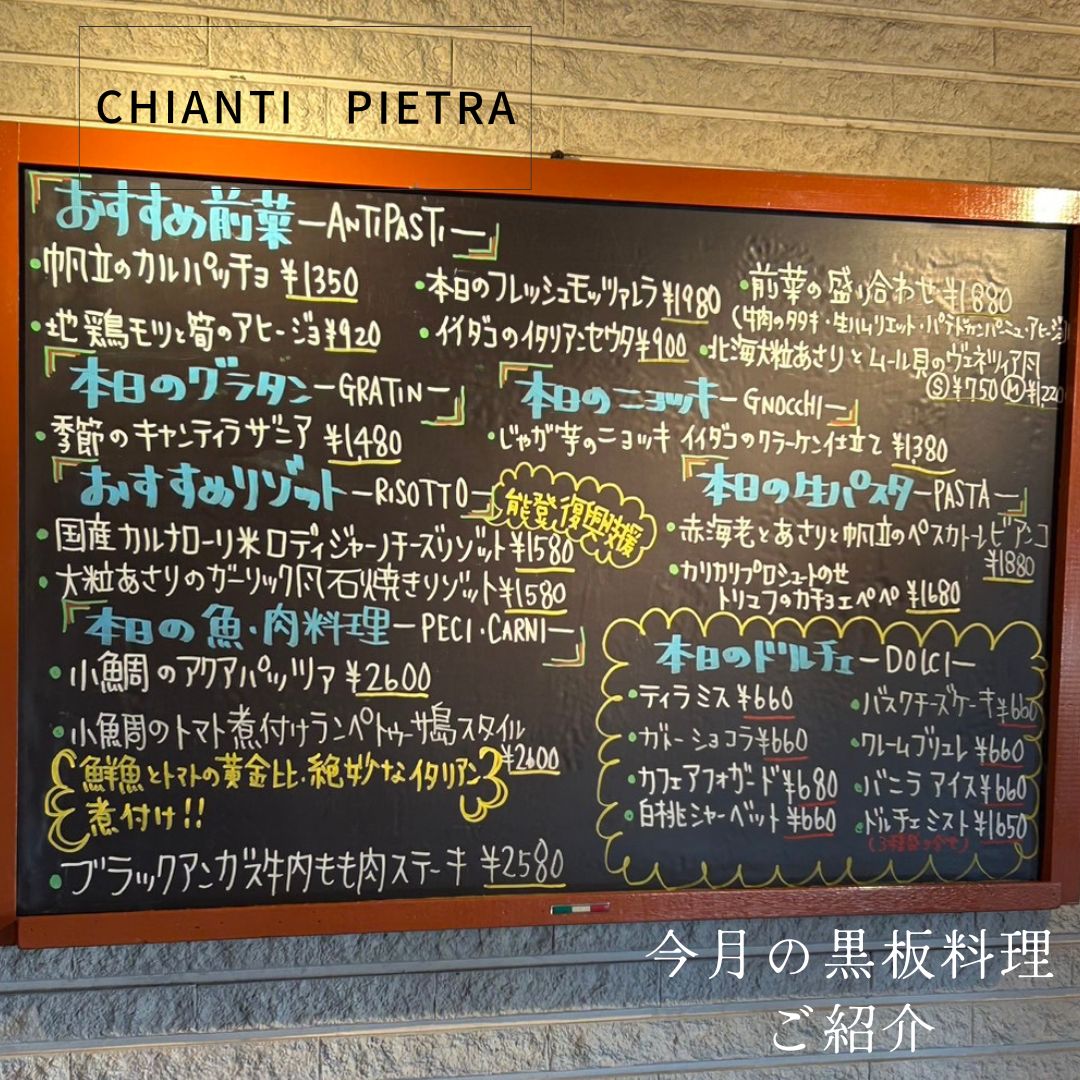 CHIANTI PIETRA
おすすめ前菜 -ANTIPASTI-
・帆立のカルパッチョ ¥1350
・地鶏モツと筍のアヒージョ ¥920
・本日のフレッシュモッツァレラ ¥1980
・イイダコのイタリアンセウタ ¥900
・前菜の盛り合わせ ¥1880
(牛肉のタタキ・生ハム・リエット・パテドカンパーニュ・アヒージョ)
・北海大粒あさりとムール貝のヴェネツィア風
Ⓢ¥750 Ⓜ¥1,220
本日のグラタン -GRATIN-
・季節のキャンティラザニア ¥1,480
本日のニョッキ -GNOCCHI-
・じゃが芋のニョッキ イイダコのクラーケン仕立て ¥1,380
おすすめリゾット -RISOTTO-
能登復興支援
・国産カルナローリ米ロディジャーノチーズリゾット ¥1580
・大粒あさりのガーリック風石焼きリゾット ¥1580
本日の生パスタ -PASTA-
・赤海老とあさりと帆立のペスカトーレビアンコ
¥1880
・カリカリプロシュートのせ
トリュフのカチョエペペ ¥1680
本日の魚・肉料理 -PECI・CARNI-
・小鯛のアクアパッツァ ¥2600
・小鯛のトマト煮付け ランペドゥーサ島スタイル
¥2600
鮮魚とトマトの黄金比・絶妙なイタリアン
煮付け!!
・ブラックアンガス牛内もも肉ステーキ ¥2580
本日のドルチェ -DOLCI-
・ティラミス ¥660
・ガトーショコラ ¥660
・カフェアフォガード ¥680
・白桃シャーベット ¥660
・バスクチーズケーキ ¥660
・クレームブリュレ ¥660
・バニラアイス ¥660
・ドルチェミスト ¥1650
(3種盛り合せ)
今月の黒板料理
ご紹介